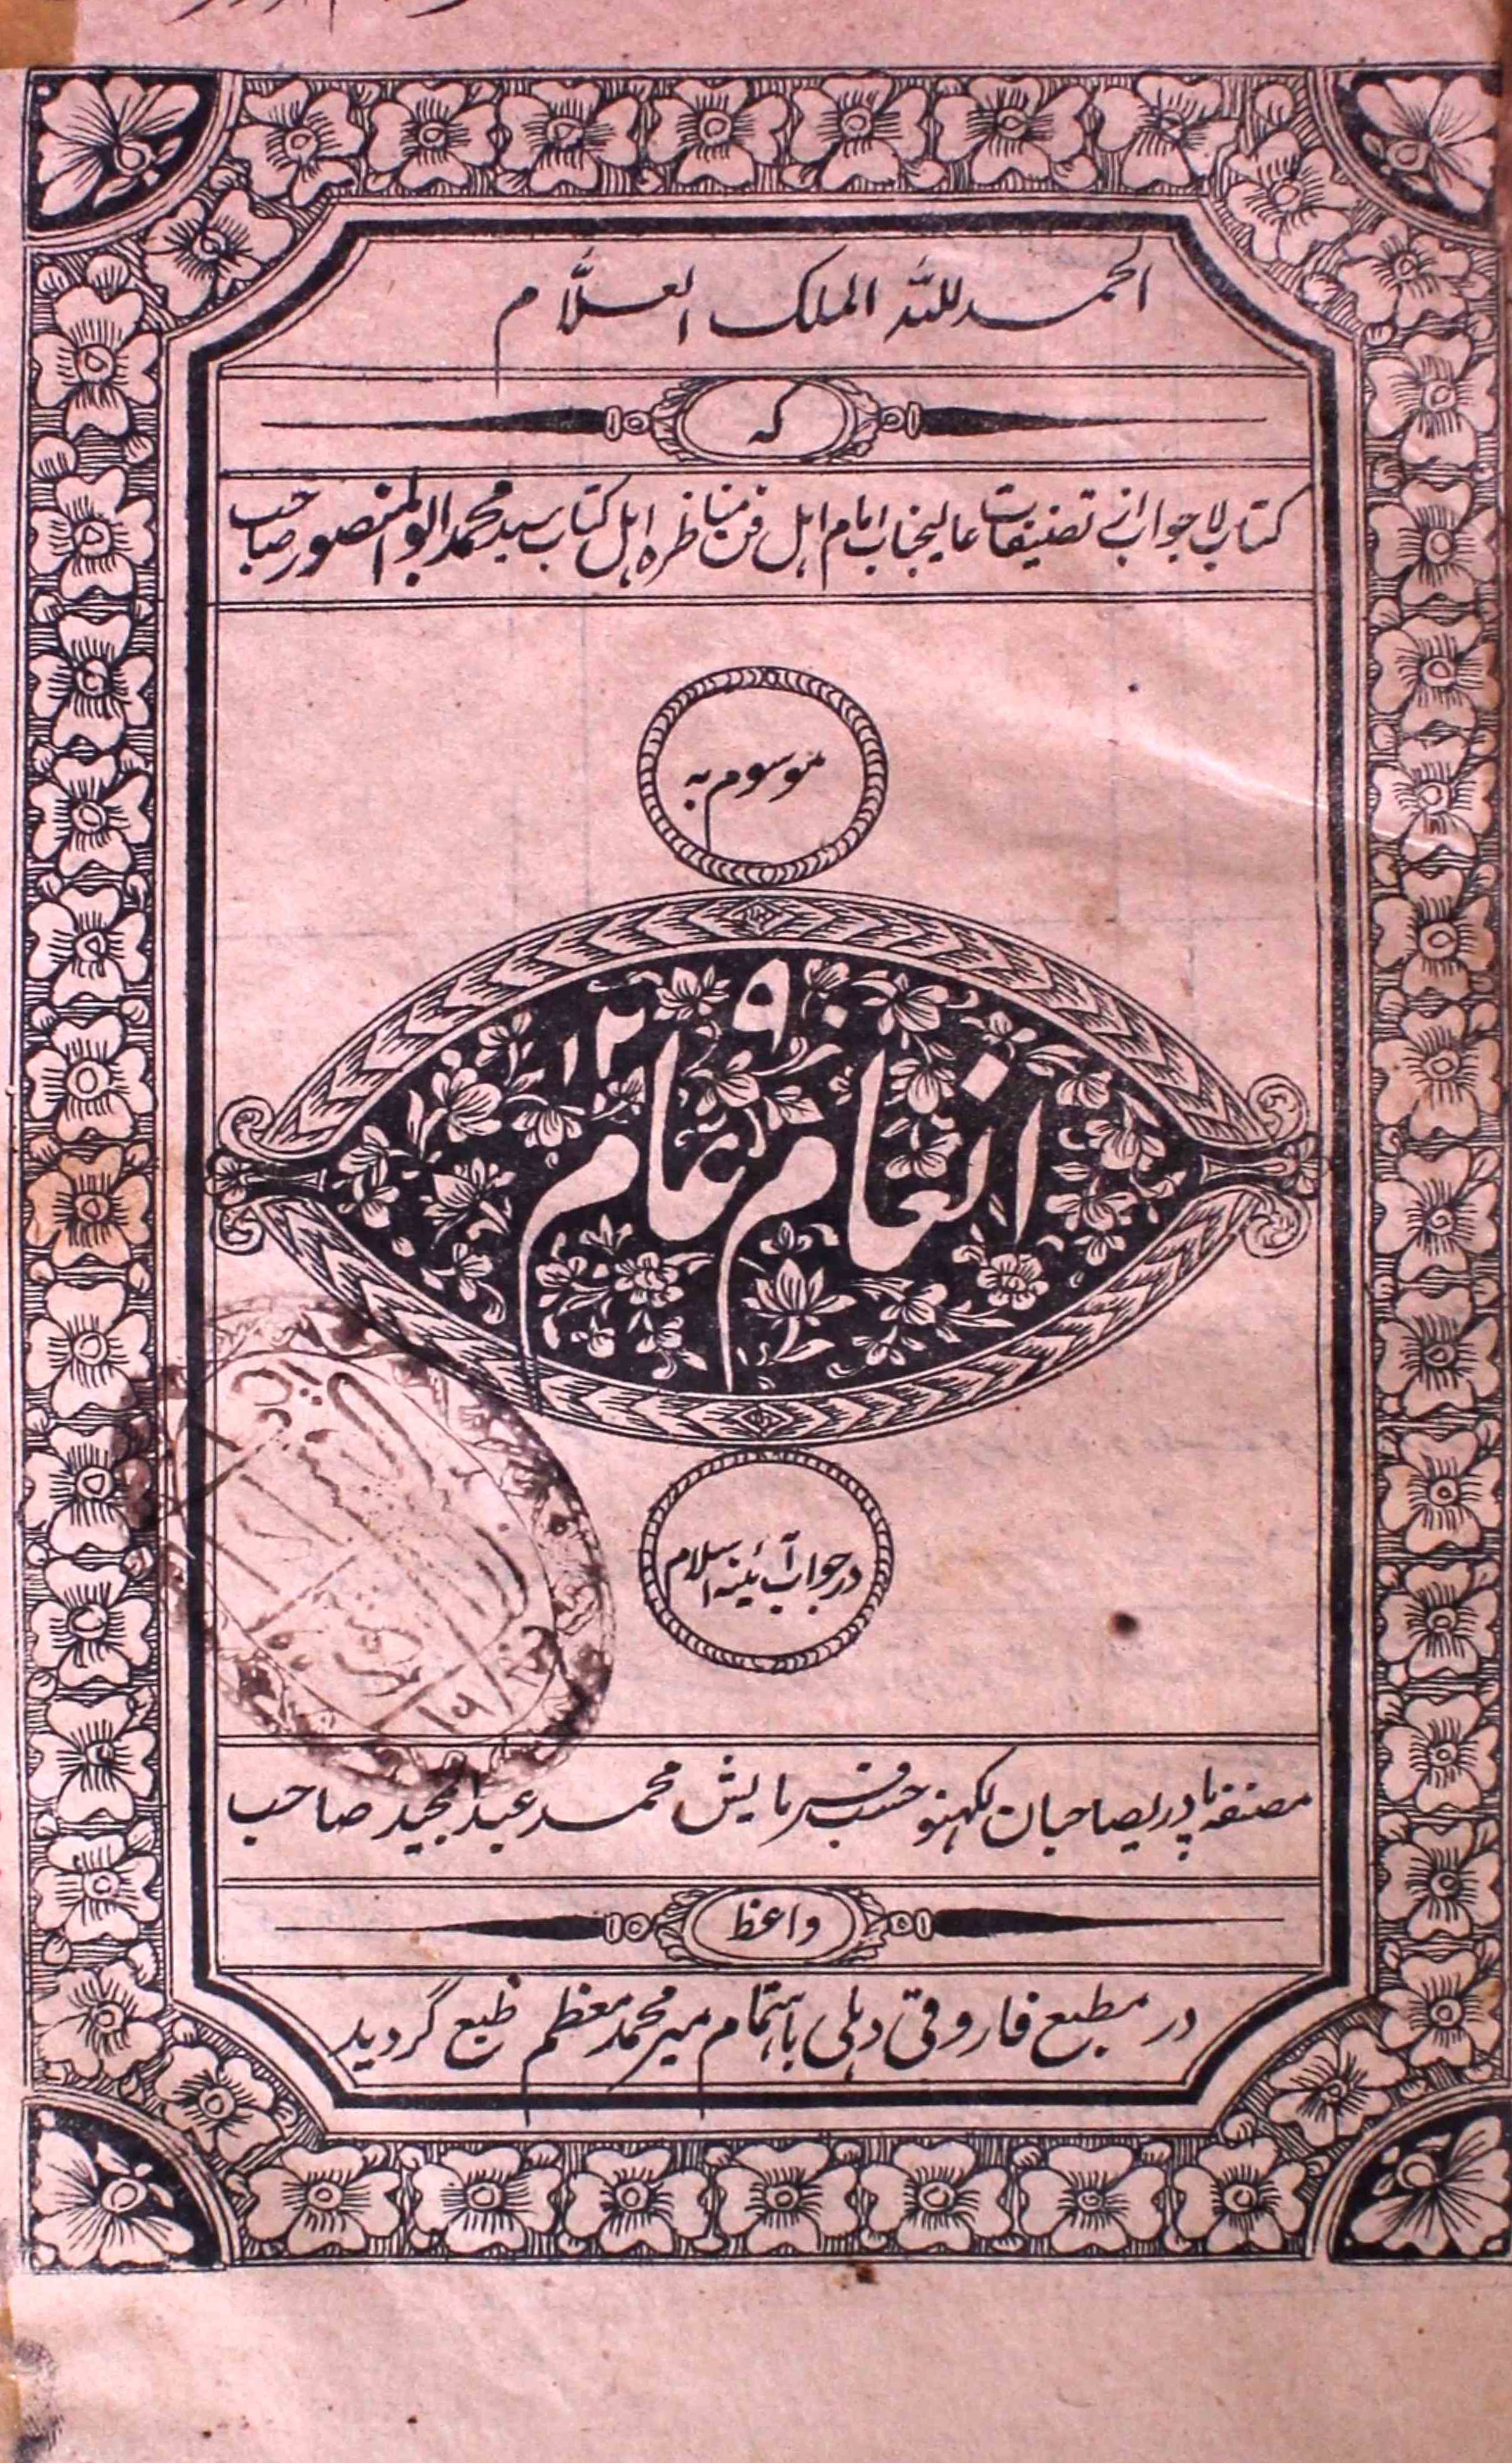 الحمد للله الملک العلّام
که
کتاب لاجواب از تصنیفات عالیجناب امام اہل فن مناظرہ اہل کتاب سید محمد ابو المنصور صاحب
موسوم بہ
۱۲۹۰
انعام عام
در جواب آئینہ اسلام
مصنفہ پادریصاحبان لکہنو حسب فرمایش محمد عبد المجید صاحب
واعظ
در مطبع فاروقی دہلی باہتمام میر محمد معظم طبع گردید